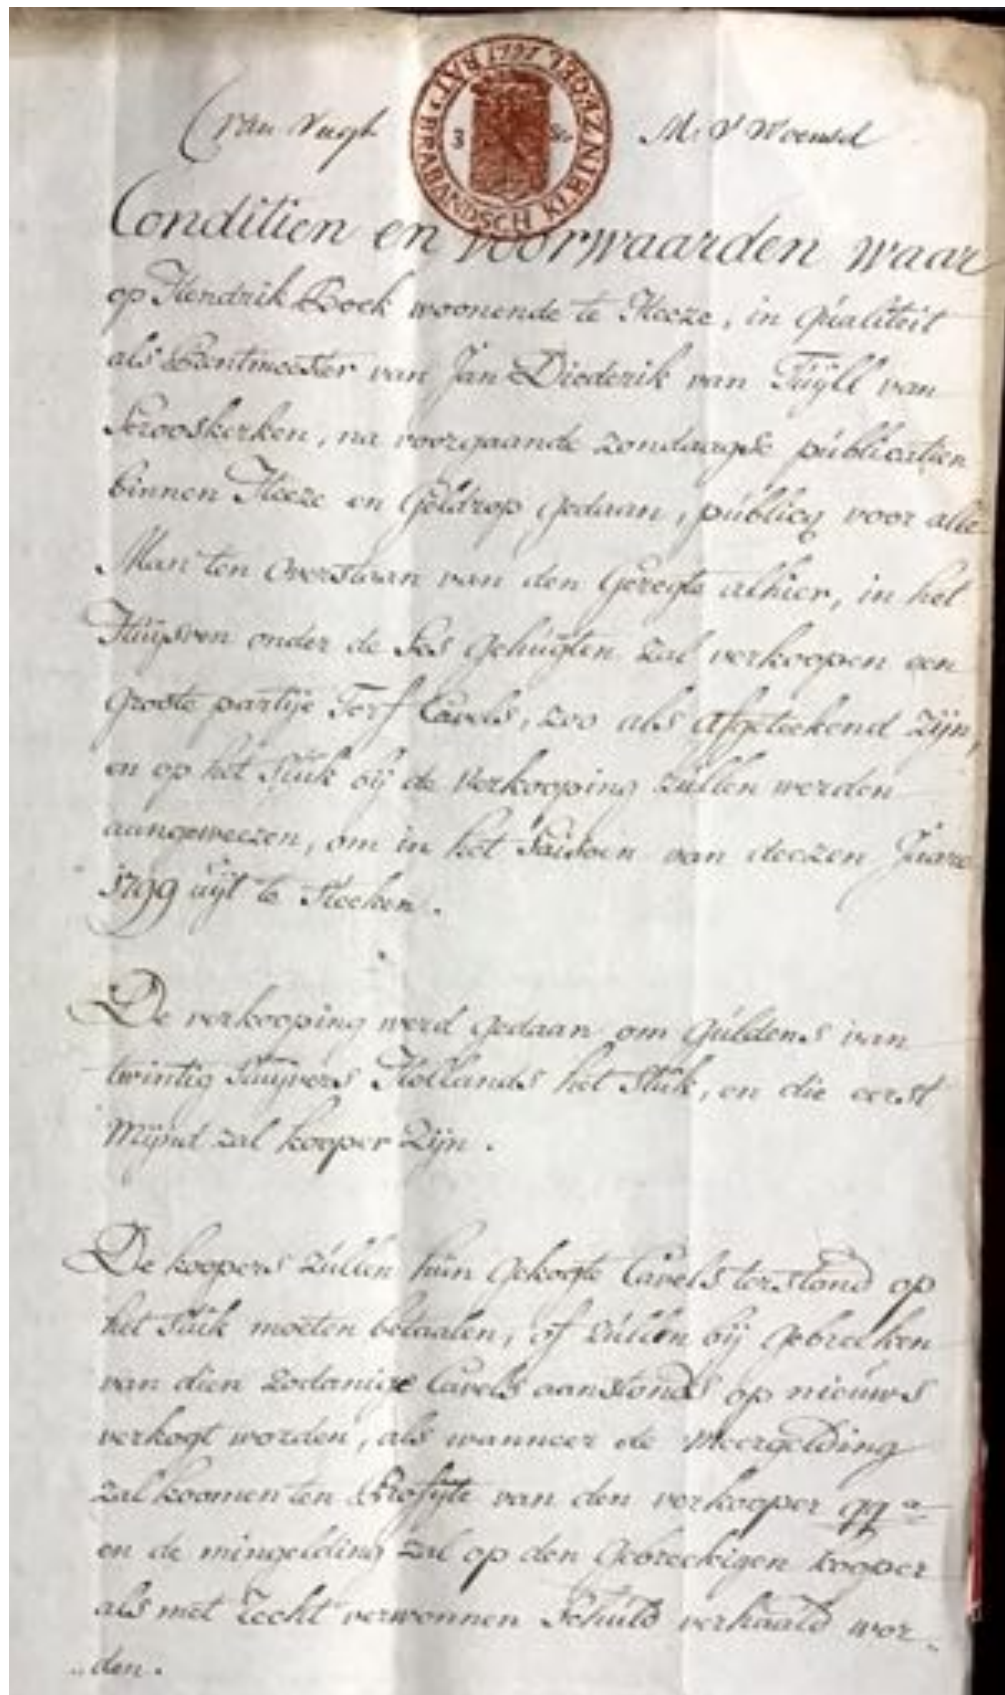 C van Vugh M: V Woensel
BAT: BRABANDSCH KLEIN ZEGEL
3 St.
Conditien en voorwaarden waar
op Hendrik Boek woonende te Heeze, in qualiteit
als Rentmeester van Jan Diederik van Tuÿll van
Serooskerken, na voorgaande zondaagse publicatien
binnen Heeze en Geldrop gedaan, publicq voor alle
Man ten overstaan van den Geregte alhier, in het
Huÿsven onder de Ses gehugten zal verkoopen een
groote partije Torf Cavels, zoo als afgeteekend zijn,
en op het Stuk bij de verkooping zullen werden
aangeweezen, om in het Saisoen van deezen Jaare
1799 uÿt te Steeken.
De verkooping werd gedaan om guldens van
twintig Stuÿvers Hollands het Stuk, en die eerst
Mijnd zal kooper zijn.
De koopers zullen hun gekogte Cavels terstond op
het Stuk moeten betaalen, of zullen bij gebreeken
van dien zodanige Cavels aanstonds op nieuws
verkogt worden, als wanneer de Meergelding
zal koomen ten Profijte van den verkooper qq.a
en de mingelding zal op den gebreekigen kooper
als met Recht verwonnen Schuld verhaald wor..
..den.